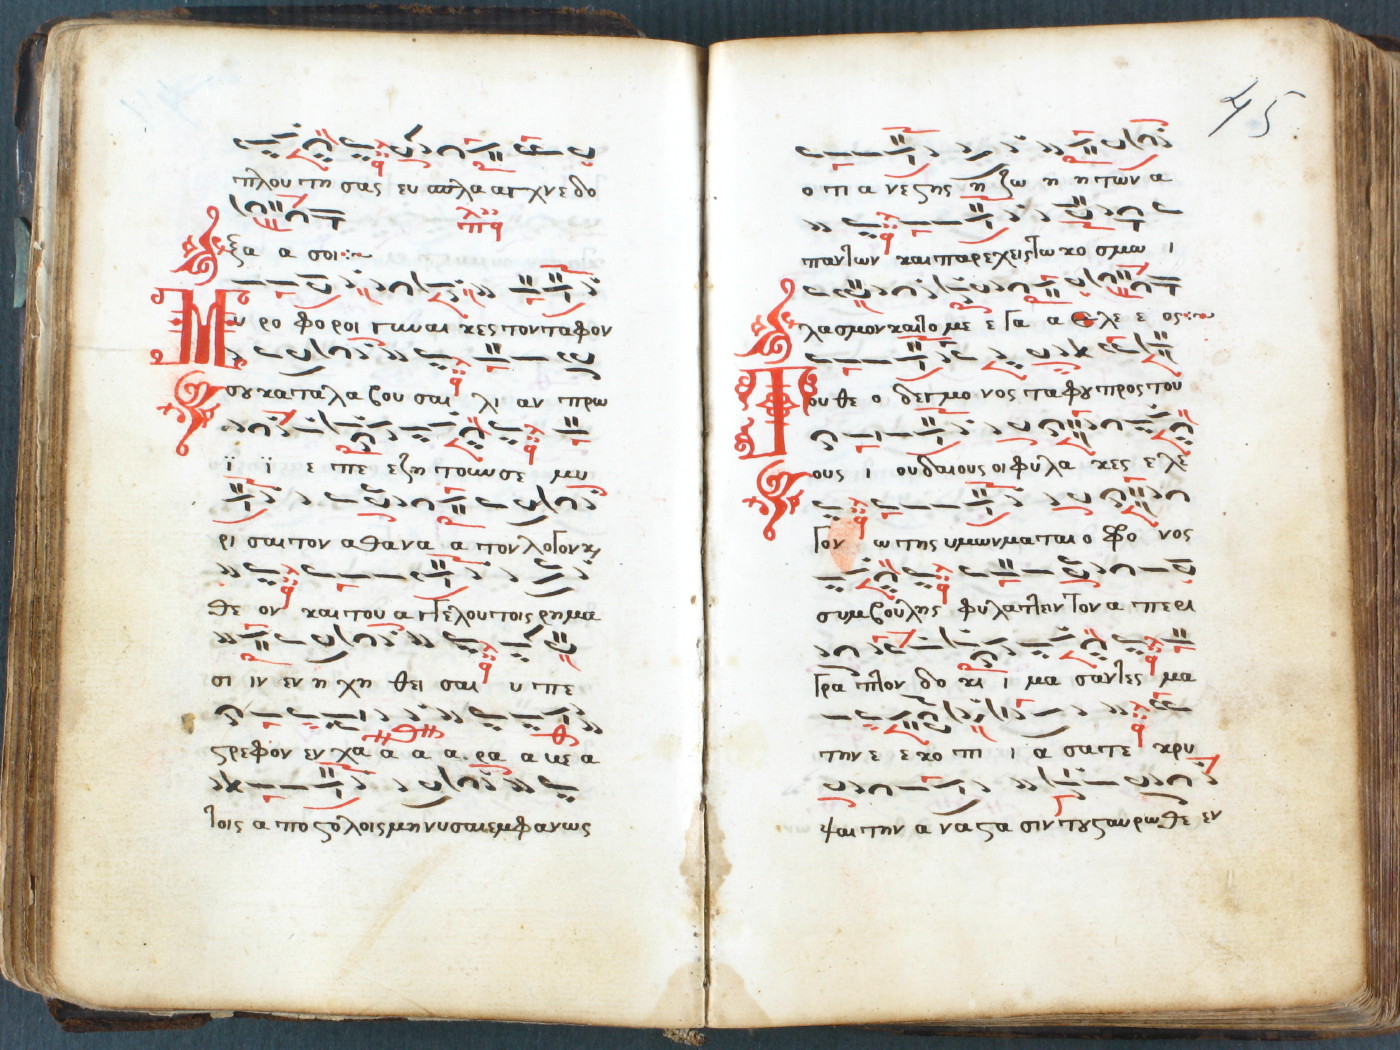 πλου τη σας ευ απλα αγ χνε δο
ξα α σοι
Μυ ρο φο ροι γυναι κες τον ταφον
σου κατα λα βου σαι λι αν πρω
ϊ ϊ ε πε εζη τουν σε μυ
ρι σαι τον αθανα α τον λογον κ
θε ον και του α γγελου τοις ρημα
σι ιν εν η χη θει σαι υ πε
στρεφον εν χα α α α ρα α με α
τοις α πο στολοις μηνυσαι εμφανως
45
ο τι α νεστης η ζω η η των α
παντων και παρεχεις τω κο σμω ι
λασμον και το με ε γα α ελε ε ος
Του θε ο δεγμο νος ταφου προς του
ους ι ουδαιους οι φυλα κες ε λε
γον ω της υμων μαται ο φρο νος
συμβουλης φυλαττειν τον α περι
γρα πτον δο κι ι μα σαντες μα
την ε ε κο πι ι α σα τε κρυ
ψαι την α να στα σιν του σταυρωθε εν